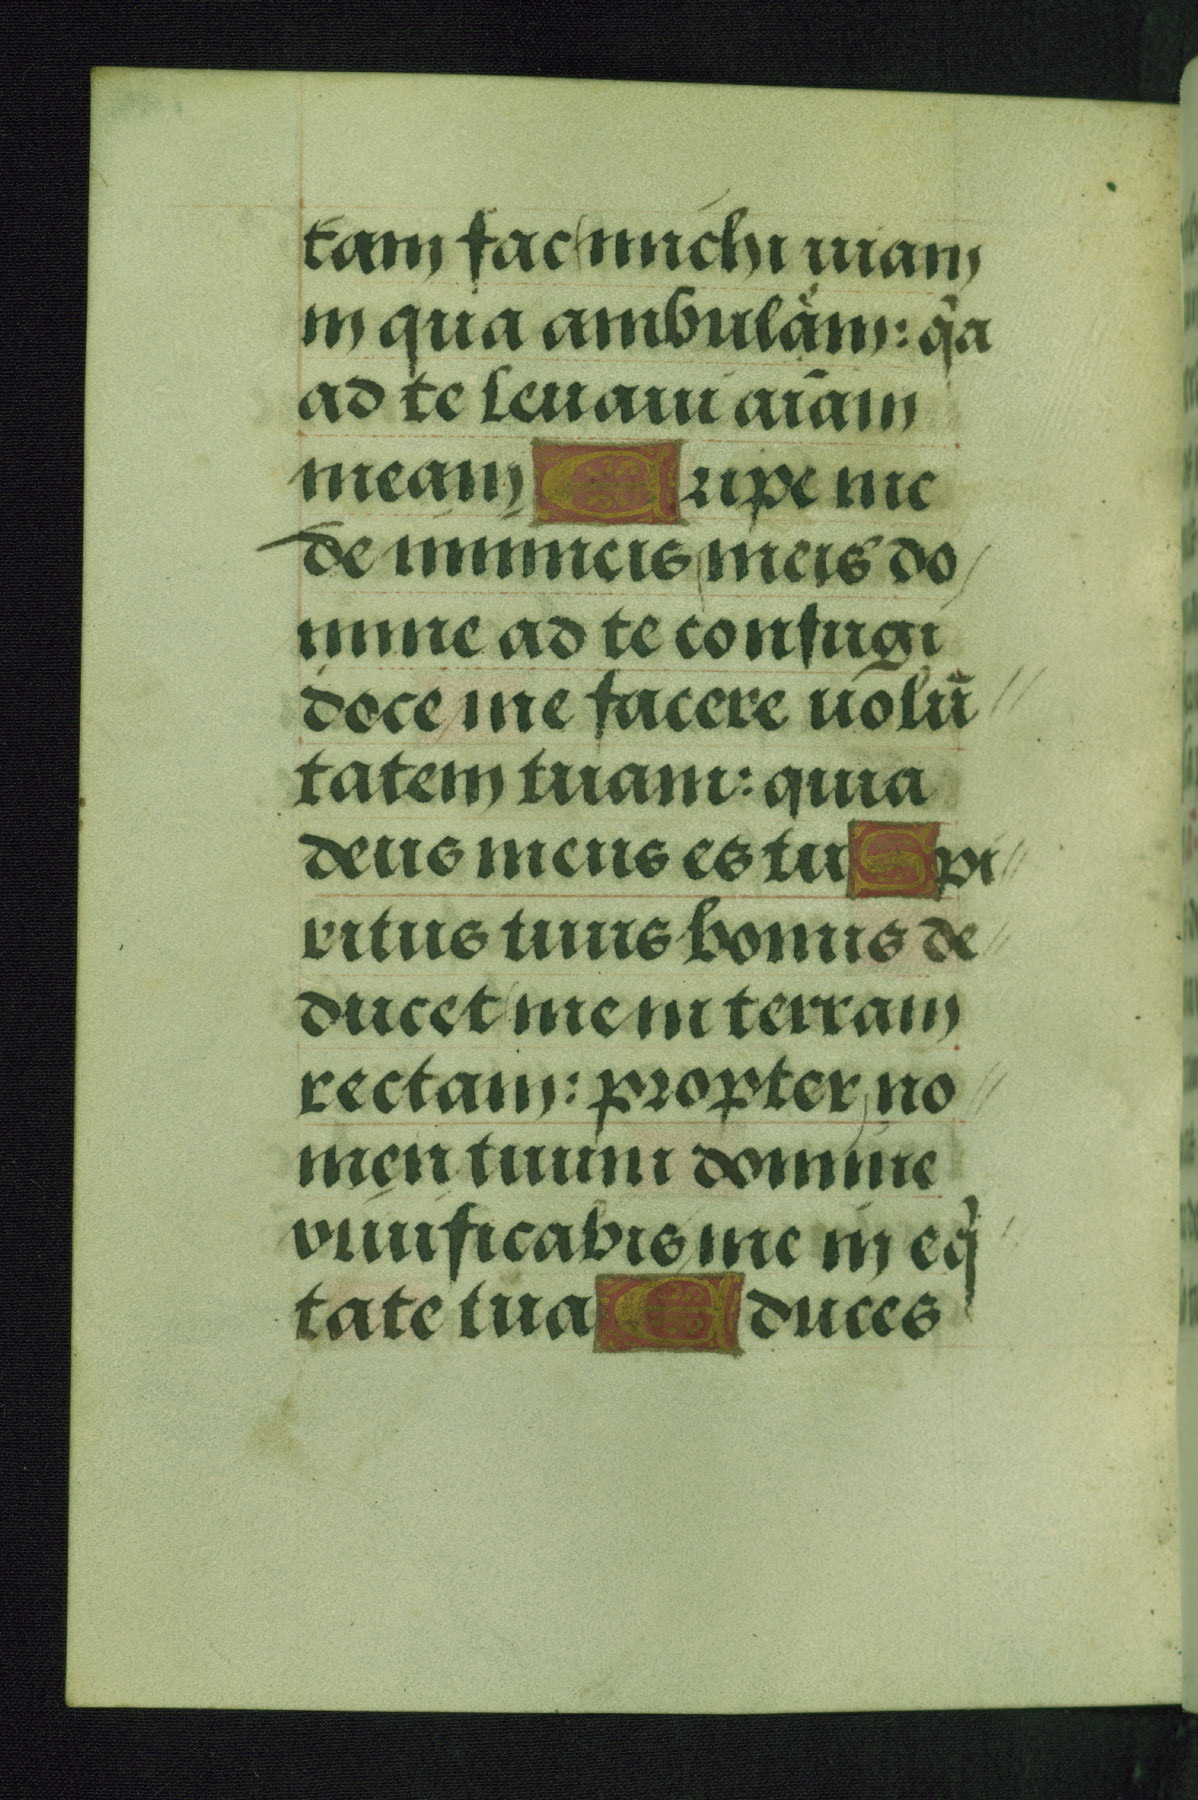 tam fac michi uiam
in qua ambulam: q̃a
ad te leuaui aiãm
meam Eripe me
de inimicis meis do
mine ad te confugi
doce me facere uolũ
tatem tuam: quia
deus meus es tu Spi
ritus tuus bonus de
ducet me in terram
rectam: propter no
men tuum domine
viuificabis me in eq̃
tate tua Educes